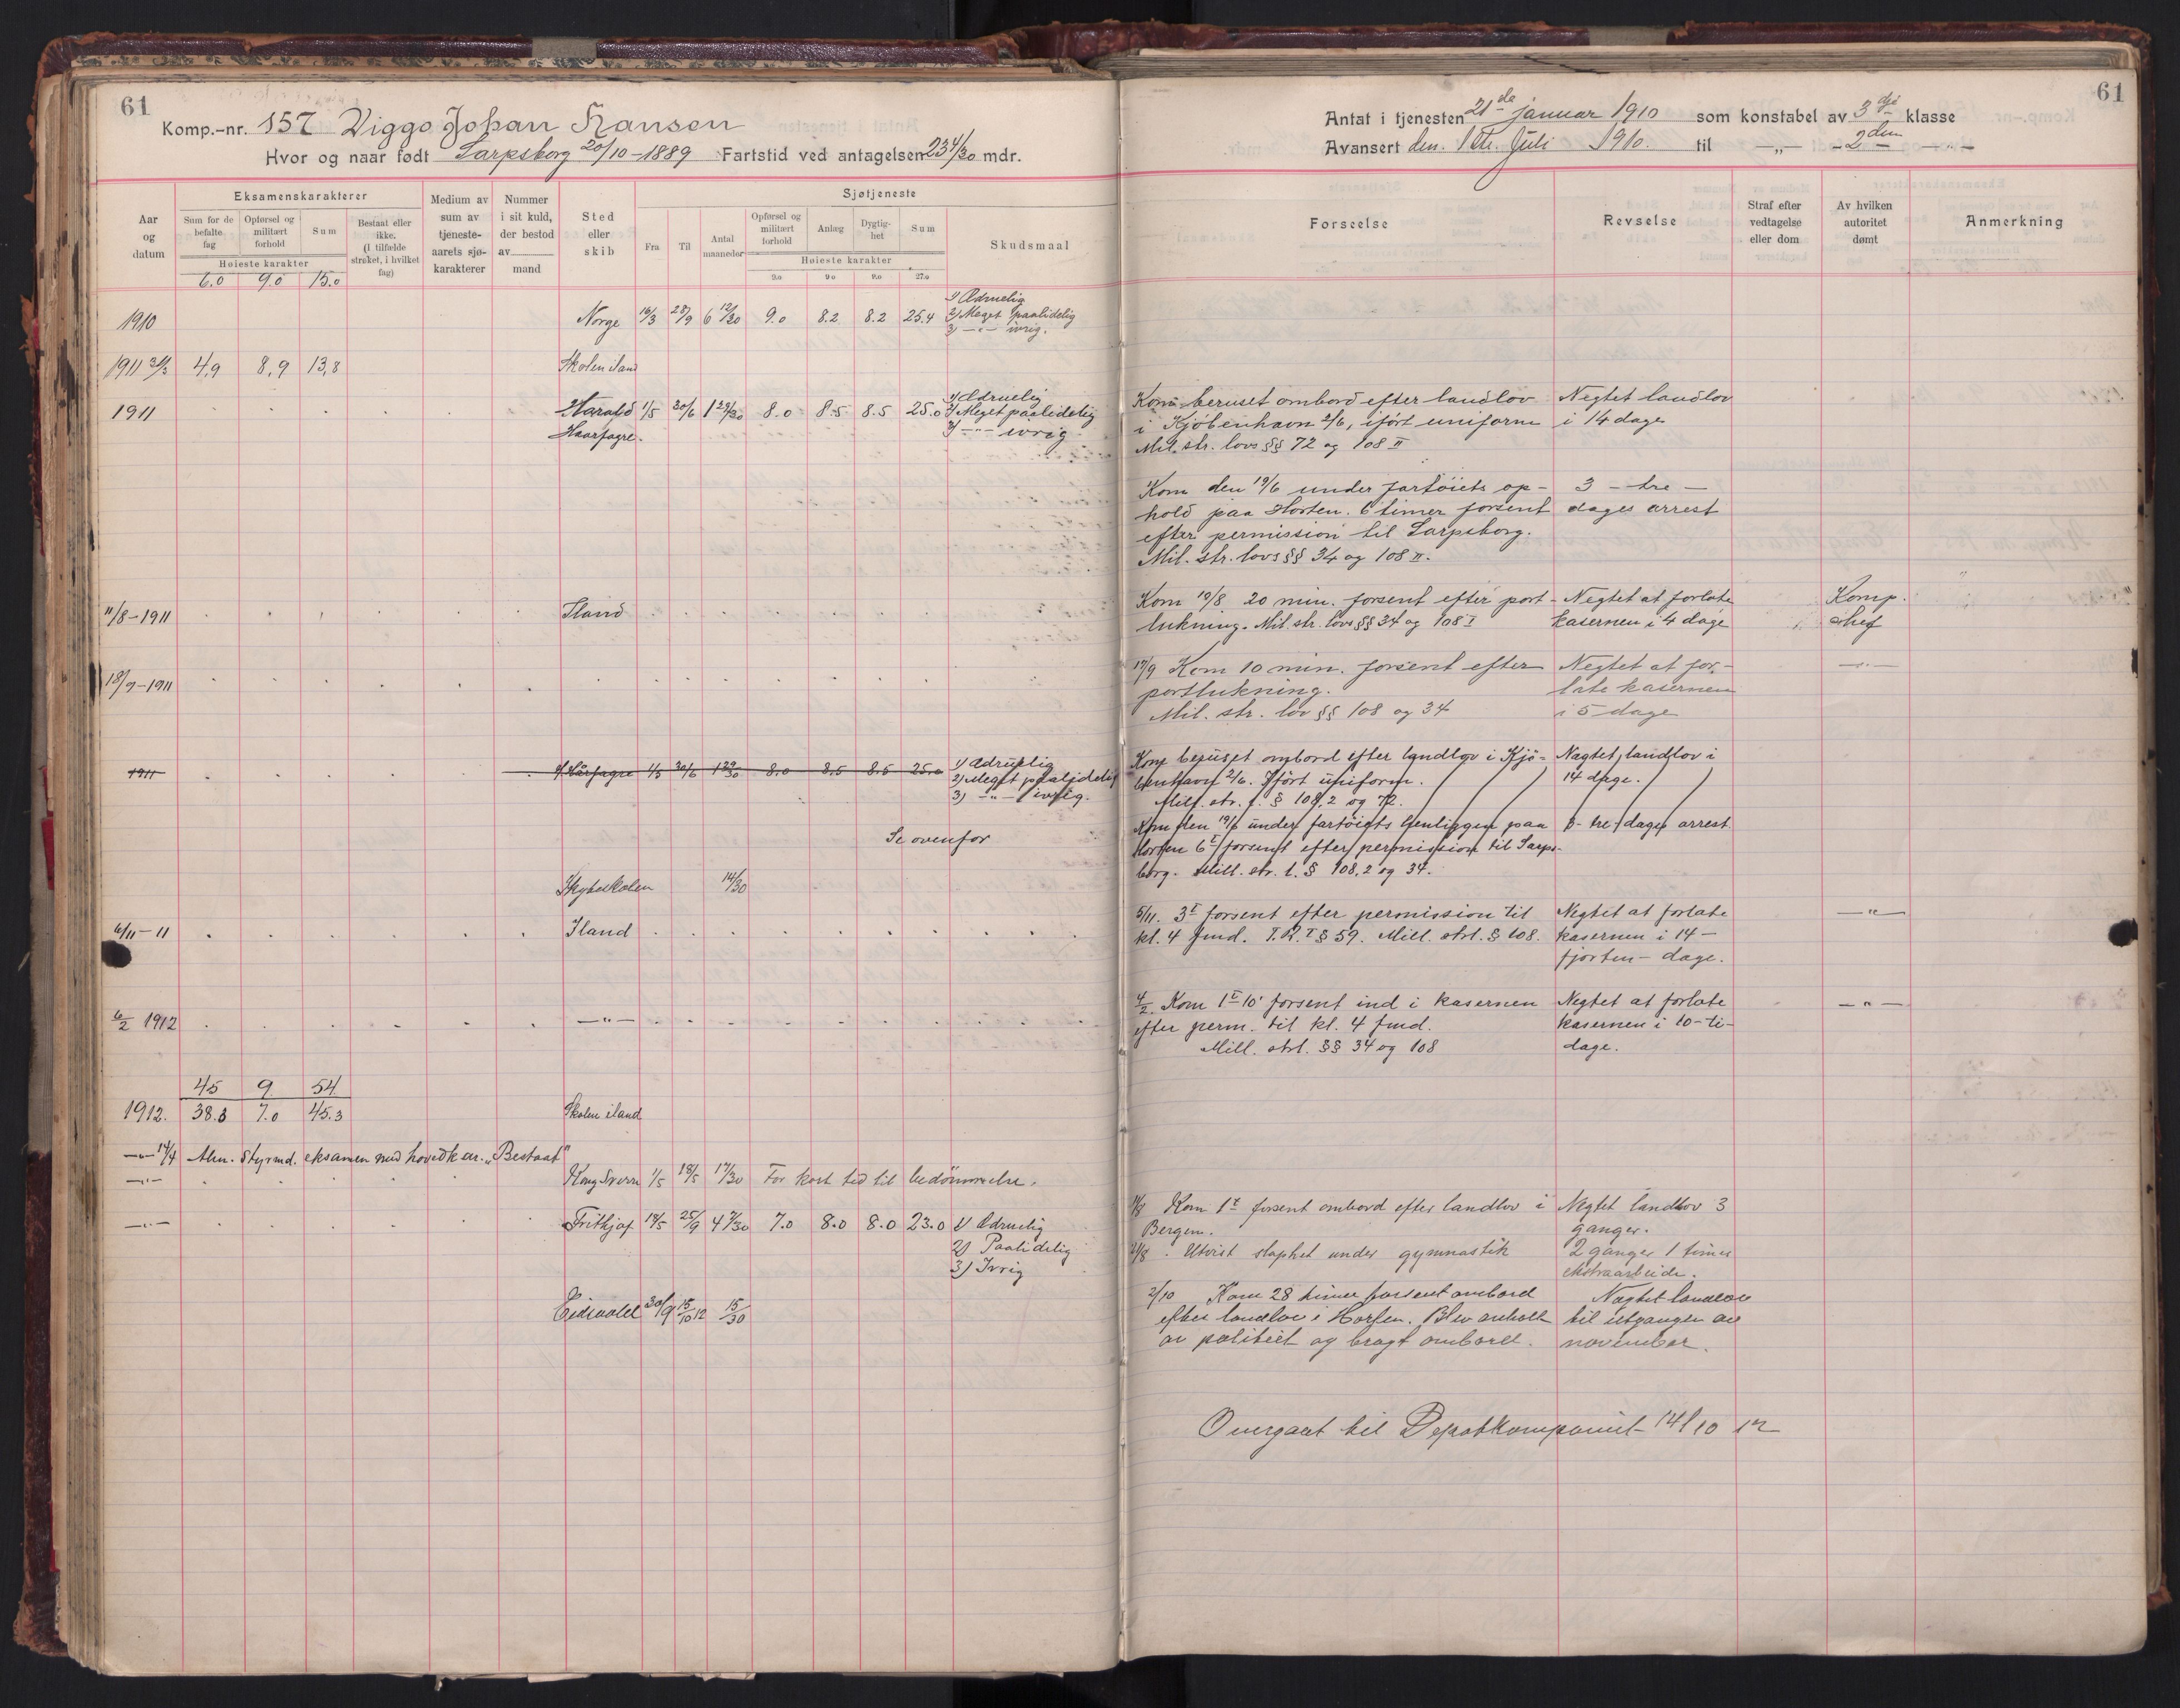 61
Komp.-nr. 157 Viggo Johan Hansen
Hvor og naar født Sarpsborg 20/10-1889 Fartstid ved antagelsen 23 4/30 mdr.
Aar og datum
Eksamenskarakterer
Sum for de befalte fag
Opførsel og militært forhold
Sum
Bestaat eller ikke. (I tilfælde strøket, i hvilket fag)
Høieste karakter
6.0 9.0 15.0
Medium av sum av tjeneste-aarets sjø-karakterer
Nummer i sit kuld, der bestod av mand
Sted eller skib
Sjøtjeneste
Fra
Til
Antal maaneder
Opførsel og militært forhold
Anlæg
Dygtig-het
Sum
Høieste karakter
9.0 9.0 9.0 27.0
Skudsmaal
1910 Norge 16/3 28/9 6 12/30 9.0 8.2 8.2 25.4 1) Ædruelig
2) Meget paalidelig
3) -"- ivrig.
1911 31/3 4,9 8,9 13,8 Skolen iland
1911 Harald Haarfagre. 1/5 30/6 1 29/30 8.0 8.5 8.5 25.0 1) Ædruelig
2) Meget paalidelig
3) -"- ivrig
11/8-1911 Iland
18/9-1911
1911 H. Hårfagre 1/5 30/6 1 29/30 8.0 8.5 8.5 25.0 1) Ædruelig
2) Meget paalidelig
3) -"- ivrig.
Se ovenfor
Skyteskolen 14/30
6/11-11 Iland
6/2 1912 -"-
45 9 54
1912. 38.3 7.0 45.3 Skolen iland
-"- 14/4 Alm. Styrmd. eksamen med hovedkar. "Bestaat"
-"- Kong Sverre 1/5 18/5 17/30 For kort tid til bedømmelse.
-"- Frithjof 19/5 25/9 4 7/30 7.0 8.0 8.0 23.0 1) Ædruelig
2) Paalidelig
3) Ivrig
Eidsvold 30/9 15/10 12 15/30
61
Antat i tjenesten 21de januar 1910 som konstabel av 3dje klasse
Avansert den 1ste Juli 1910. til -"- - 2den -"-
Forseelse
Revselse
Straf efter vedtagelse eller dom
Av hvilken autoritet dømt
Anmerkning
Kom beruset ombord efter landlov Negtet landlov
i Kjöbenhavn 2/6, iført uniform i 14 dage
Mil. str. lovs §§ 72 og 108 II
Kom den 19/6 under fartöiets op- 3 - tre -
hold paa Horten. 6 timer forsent dages arrest
efter permission til Sarpsborg.
Mil. str. lovs §§ 34 og 108 II.
Kom 10/8 20 min. forsent efter port- Negtet at forlate Komp.
lukning. Mil. str. lovs §§ 34 og 108 I kasernen i 4 dage chef
17/9 Kom 10 min. forsent efter Negtet at for- -"-
portlukning. late kasernen
Mil. str. lov §§ 108 og 34 i 5 dage
Kom beruset ombord efter landlov i Kjö- Nægtet landlov i
benhavn 2/6. Iført uniform. 14 dage.
Mill. str. l. § 108,2 og 72.
Kom den 19/6 under fartöiets henliggen paa 3- tre dages arrest.
Horten 6 t forsent efter permission til Sarps-
borg. Mill. str. l. § 108,2 og 34.
5/11. 3 t forsent efter permission til Negtet at forlate -"-
kl. 4 fmd. T.R. I § 59. Mill. strl. § 108. kasernen i 14 -
fjorten - dage.
4/2. Kom 1 t 10' forsent ind i kasernen Negtet at forlate -"-
efter perm. til kl. 4 fmd. kasernen i 10-ti-
Mill. strl. §§ 34 og 108 dage.
Kom 1 t forsent ombord efter landlov i Negtet landlov 3
Bergen. ganger.
21/8. Utvist slaphet under gymnastik 2 ganger 1 times
ekstraarbeide.
2/10 Kom 28 timer forsent ombord Nægtet landlov
efter landlov i Horten. Blev anholdt til utgangen av
av politiet og bragt ombord. november.
Overgaat til Depotkompaniet 14/10 12